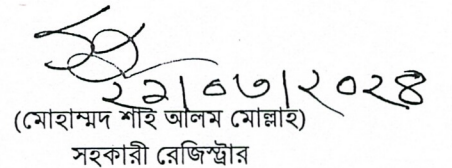 ২২/০৭/২০২৪
(মোহাম্মদ শাহ আলম মোল্লাহ)
সহকারী রেজিস্ট্রার